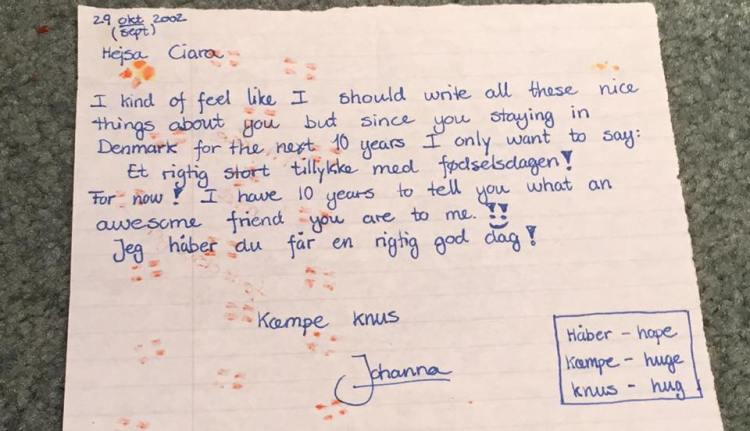 29 okt 2002
(sept)
Hejsa Ciara
I kind of feel like I should write all these nice
things about you but since you staying in
Denmark for the next 10 years I only want to say:
Et rigtig stort tillykke med fødselsdagen!
For now! I have 10 years to tell you what an
awesome friend you are to me. !!
Jeg håber du får en rigtig god dag!
Kæmpe knus
Johanna
Håber - hope
Kæmpe - huge
knus - hug